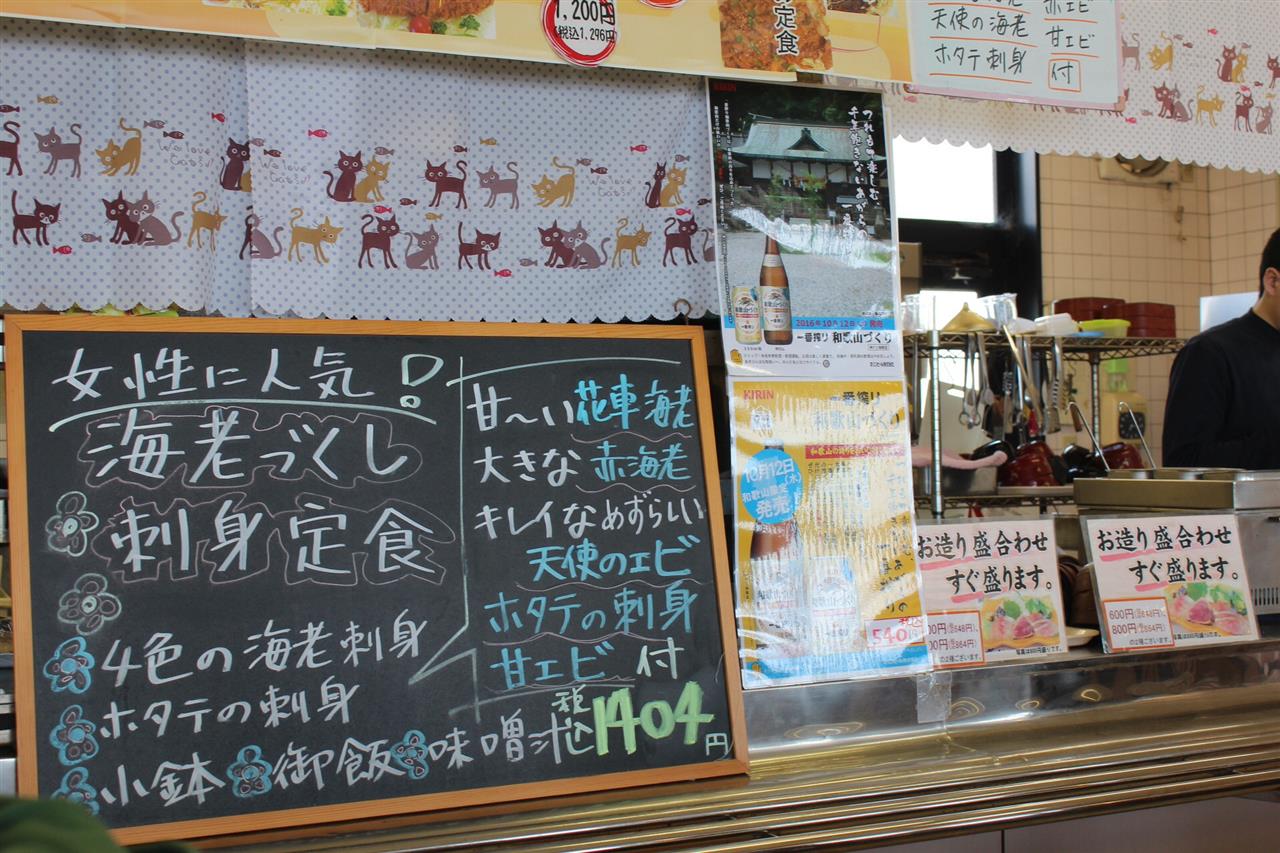 1,200円
(税込1,296円)
定食
天使の海老
ホタテ刺身
赤エビ
甘エビ
付
We love
Cats!
女性に人気!
海老づくし
刺身定食
4色の海老刺身
ホタテの刺身
小鉢 御飯 味噌汁
甘〜い花車海老
大きな赤海老
キレイなめずらしい
天使のエビ
ホタテの刺身
甘エビ 付
税込1404円
KIRIN
つれもて楽しむ
千年飽きないあがらの
一番
2016年10月12日(水)発売
一番搾り 和歌山づくり
KIRIN
一番搾り
和歌山づくり
10月12日
(水)
和歌山限定
発売
税込
540円
お造り盛合わせ
すぐ盛ります。
00円(税込648円)、
00円(税込864円)
のみ種ございます
お造り盛合わせ
すぐ盛ります。
600円(税込648円)、
800円(税込864円)
写真は800円盛りです。